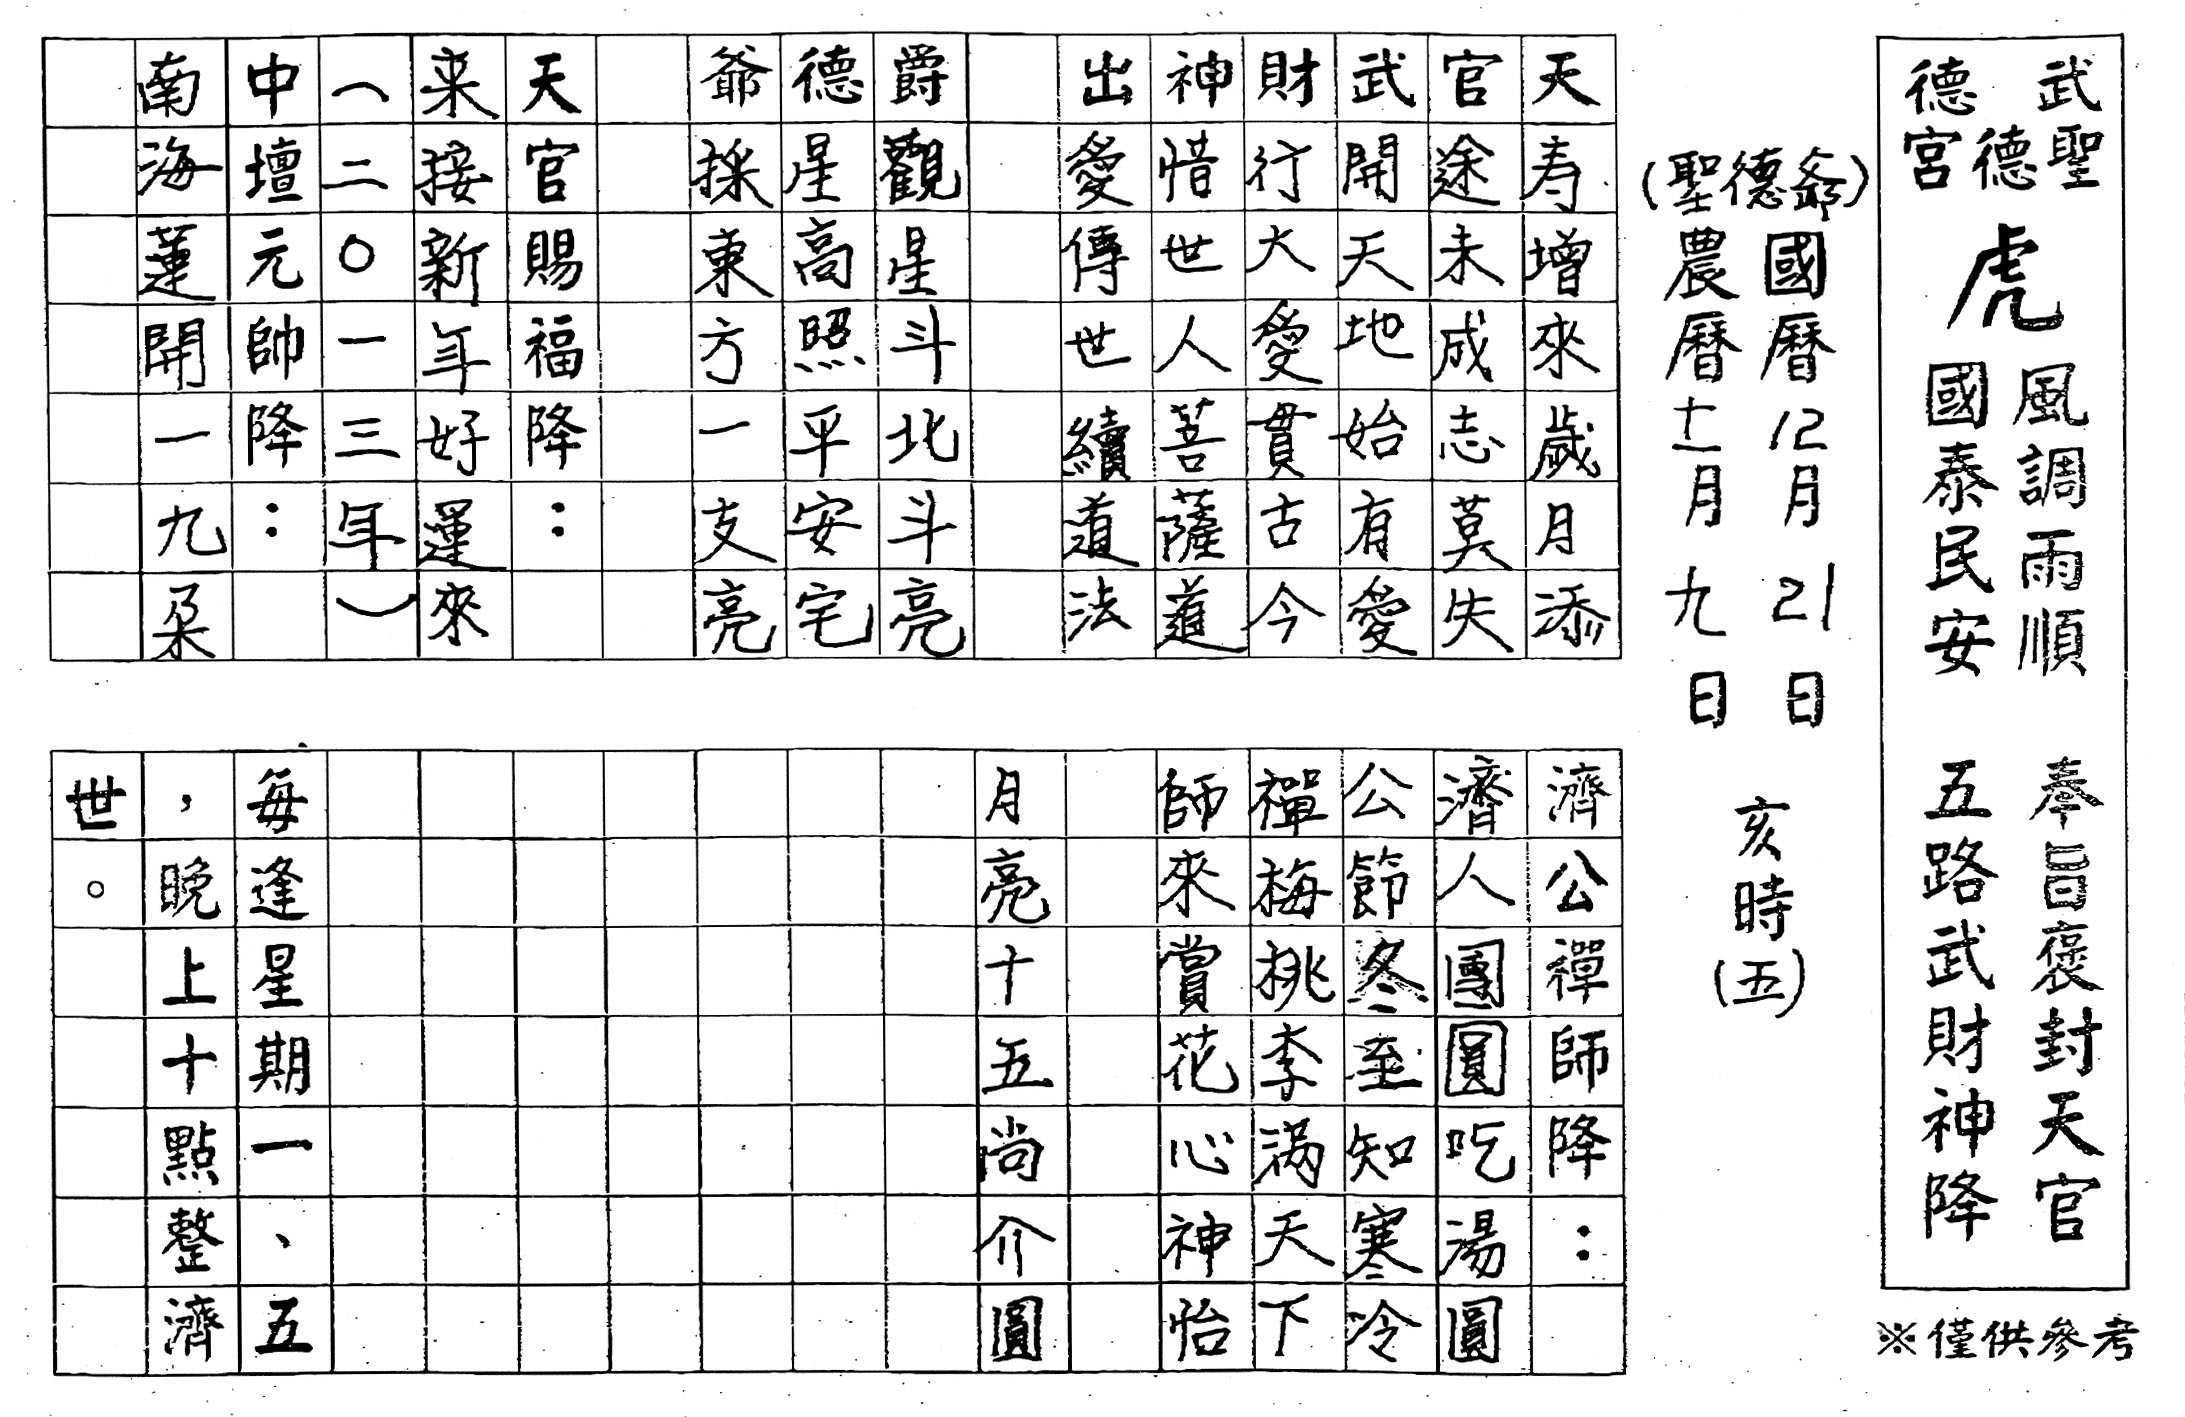 武聖德德宮
虎
風調雨順
國泰民安
奉旨褒封天官
五路武財神降
※僅供參考
(聖德爺)
國曆12月21日
農曆十一月九日
亥時(五)
天寿增來歲月添
官途未成志莫失
武開天地始有愛
財行大愛貫古今
神惜世人菩薩道
出愛傳世續道法
爵觀星斗北斗亮
德星高照平安宅
爺採東方一支亮
天官賜福降:
来接新年好運來
(二〇一三年)
中壇元帥降:
南海蓮開一九朶
濟公禪師降:
濟人團圓吃湯圓
公節冬至知寒冷
禪梅桃李滿天下
師來賞花心神怡
月亮十五尚介圓
每逢星期一、五
,晚上十點整濟
世。